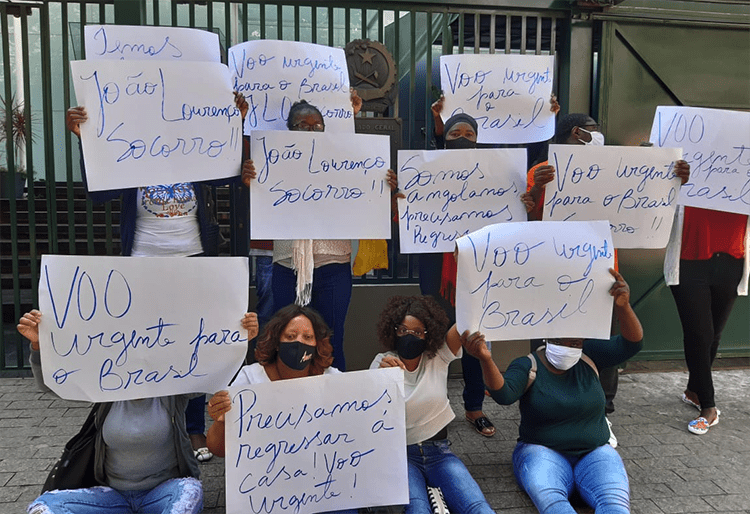 Temos
João
Lourenço
Socorro !!
Voo urgente
para o Brasil
Voo urgente
para o
Brasil
João Lourenço
Socorro !!
Somos
angolanos
precisamos
Voo urgente
para o Brasil
!!
VOO
urgente
para o
Brasil
Love
VOO urgente
para o
Brasil
VOO
urgente para
o Brasil
Precisamos
regressar á
casa! Voo
urgente!